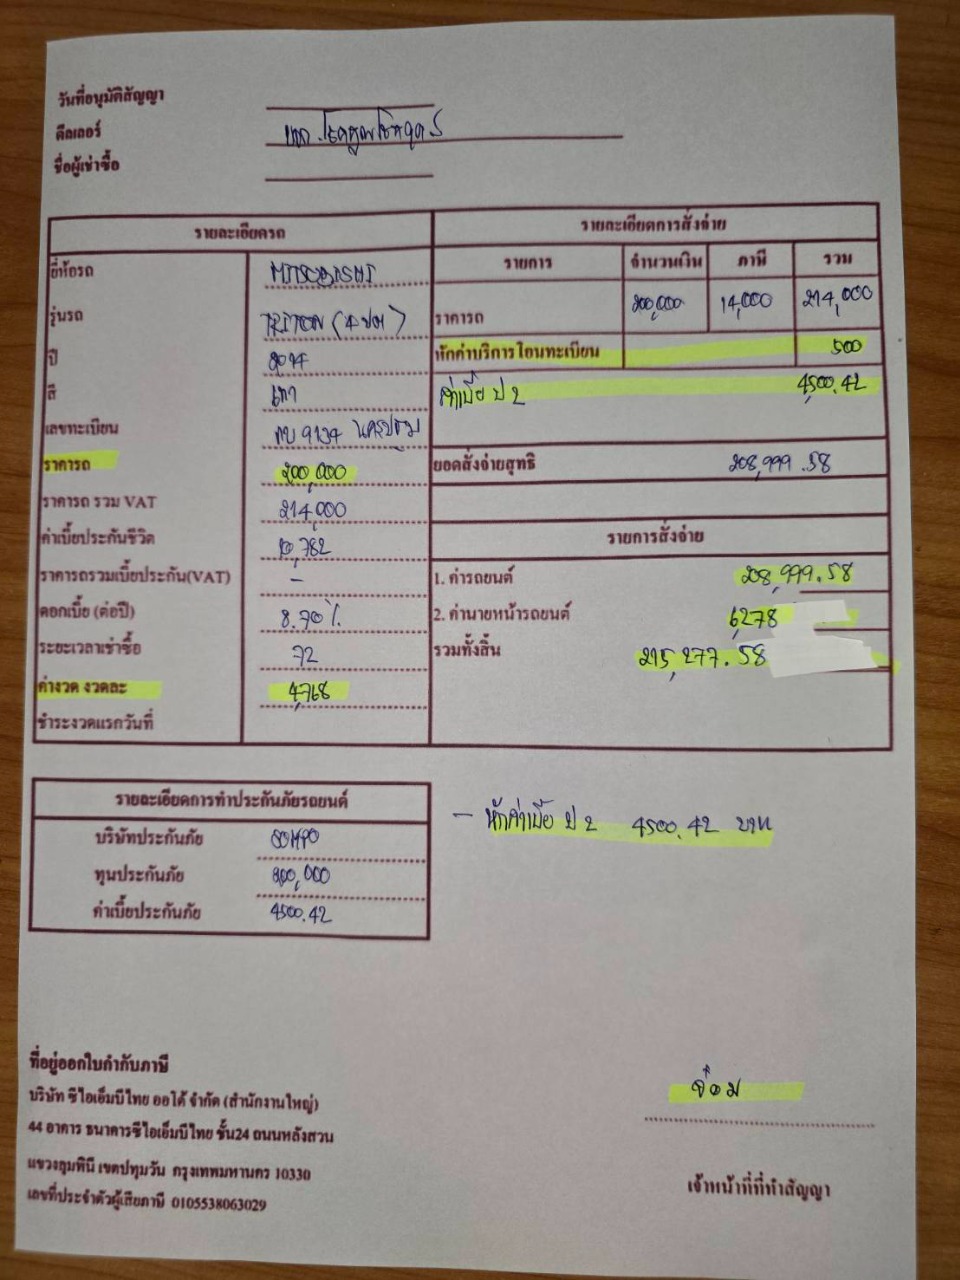 วันที่อนุมัติสัญญา
ดีลเลอร์ หจก.
ชื่อผู้เช่าซื้อ
รายละเอียดรถ
ยี่ห้อรถ MITSUBISHI
รุ่นรถ TRITON (4 ประตู)
ปี 2014
สี เทา
เลขทะเบียน 9134 นครปฐม
ราคารถ 200,000
ราคารถ รวม VAT 214,000
ค่าเบี้ยประกันชีวิต 10,782
ราคารถรวมเบี้ยประกัน(VAT) -
ดอกเบี้ย (ต่อปี) 8.70 %
ระยะเวลาเช่าซื้อ 72
ค่างวด งวดละ 4,768
ชำระงวดแรกวันที่
รายละเอียดการสั่งจ่าย
รายการ จำนวนเงิน ภาษี รวม
ราคารถ 200,000 14,000 214,000
หักค่าบริการโอนทะเบียน 500
ค่าเบี้ย ป 2 4,500.42
ยอดสั่งจ่ายสุทธิ 208,999.58
รายการสั่งจ่าย
1. ค่ารถยนต์ 208,999.58
2. ค่านายหน้ารถยนต์ 6,278
รวมทั้งสิ้น 215,277.58
รายละเอียดการทำประกันภัยรถยนต์
บริษัทประกันภัย SOMPO
ทุนประกันภัย 200,000
ค่าเบี้ยประกันภัย 4500.42
- หักค่าเบี้ย ป 2 4500.42 บาท
ที่อยู่ออกใบกำกับภาษี
บริษัท ซีไอเอ็มบีไทย ออโต้ จำกัด (สำนักงานใหญ่)
44 อาคาร ธนาคารซีไอเอ็มบีไทย ชั้น24 ถนนหลังสวน
แขวงลุมพินี เขตปทุมวัน กรุงเทพมหานคร 10330
เลขที่ประจำตัวผู้เสียภาษี 0105538063029
จ๋อม
เจ้าหน้าที่ที่ทำสัญญา